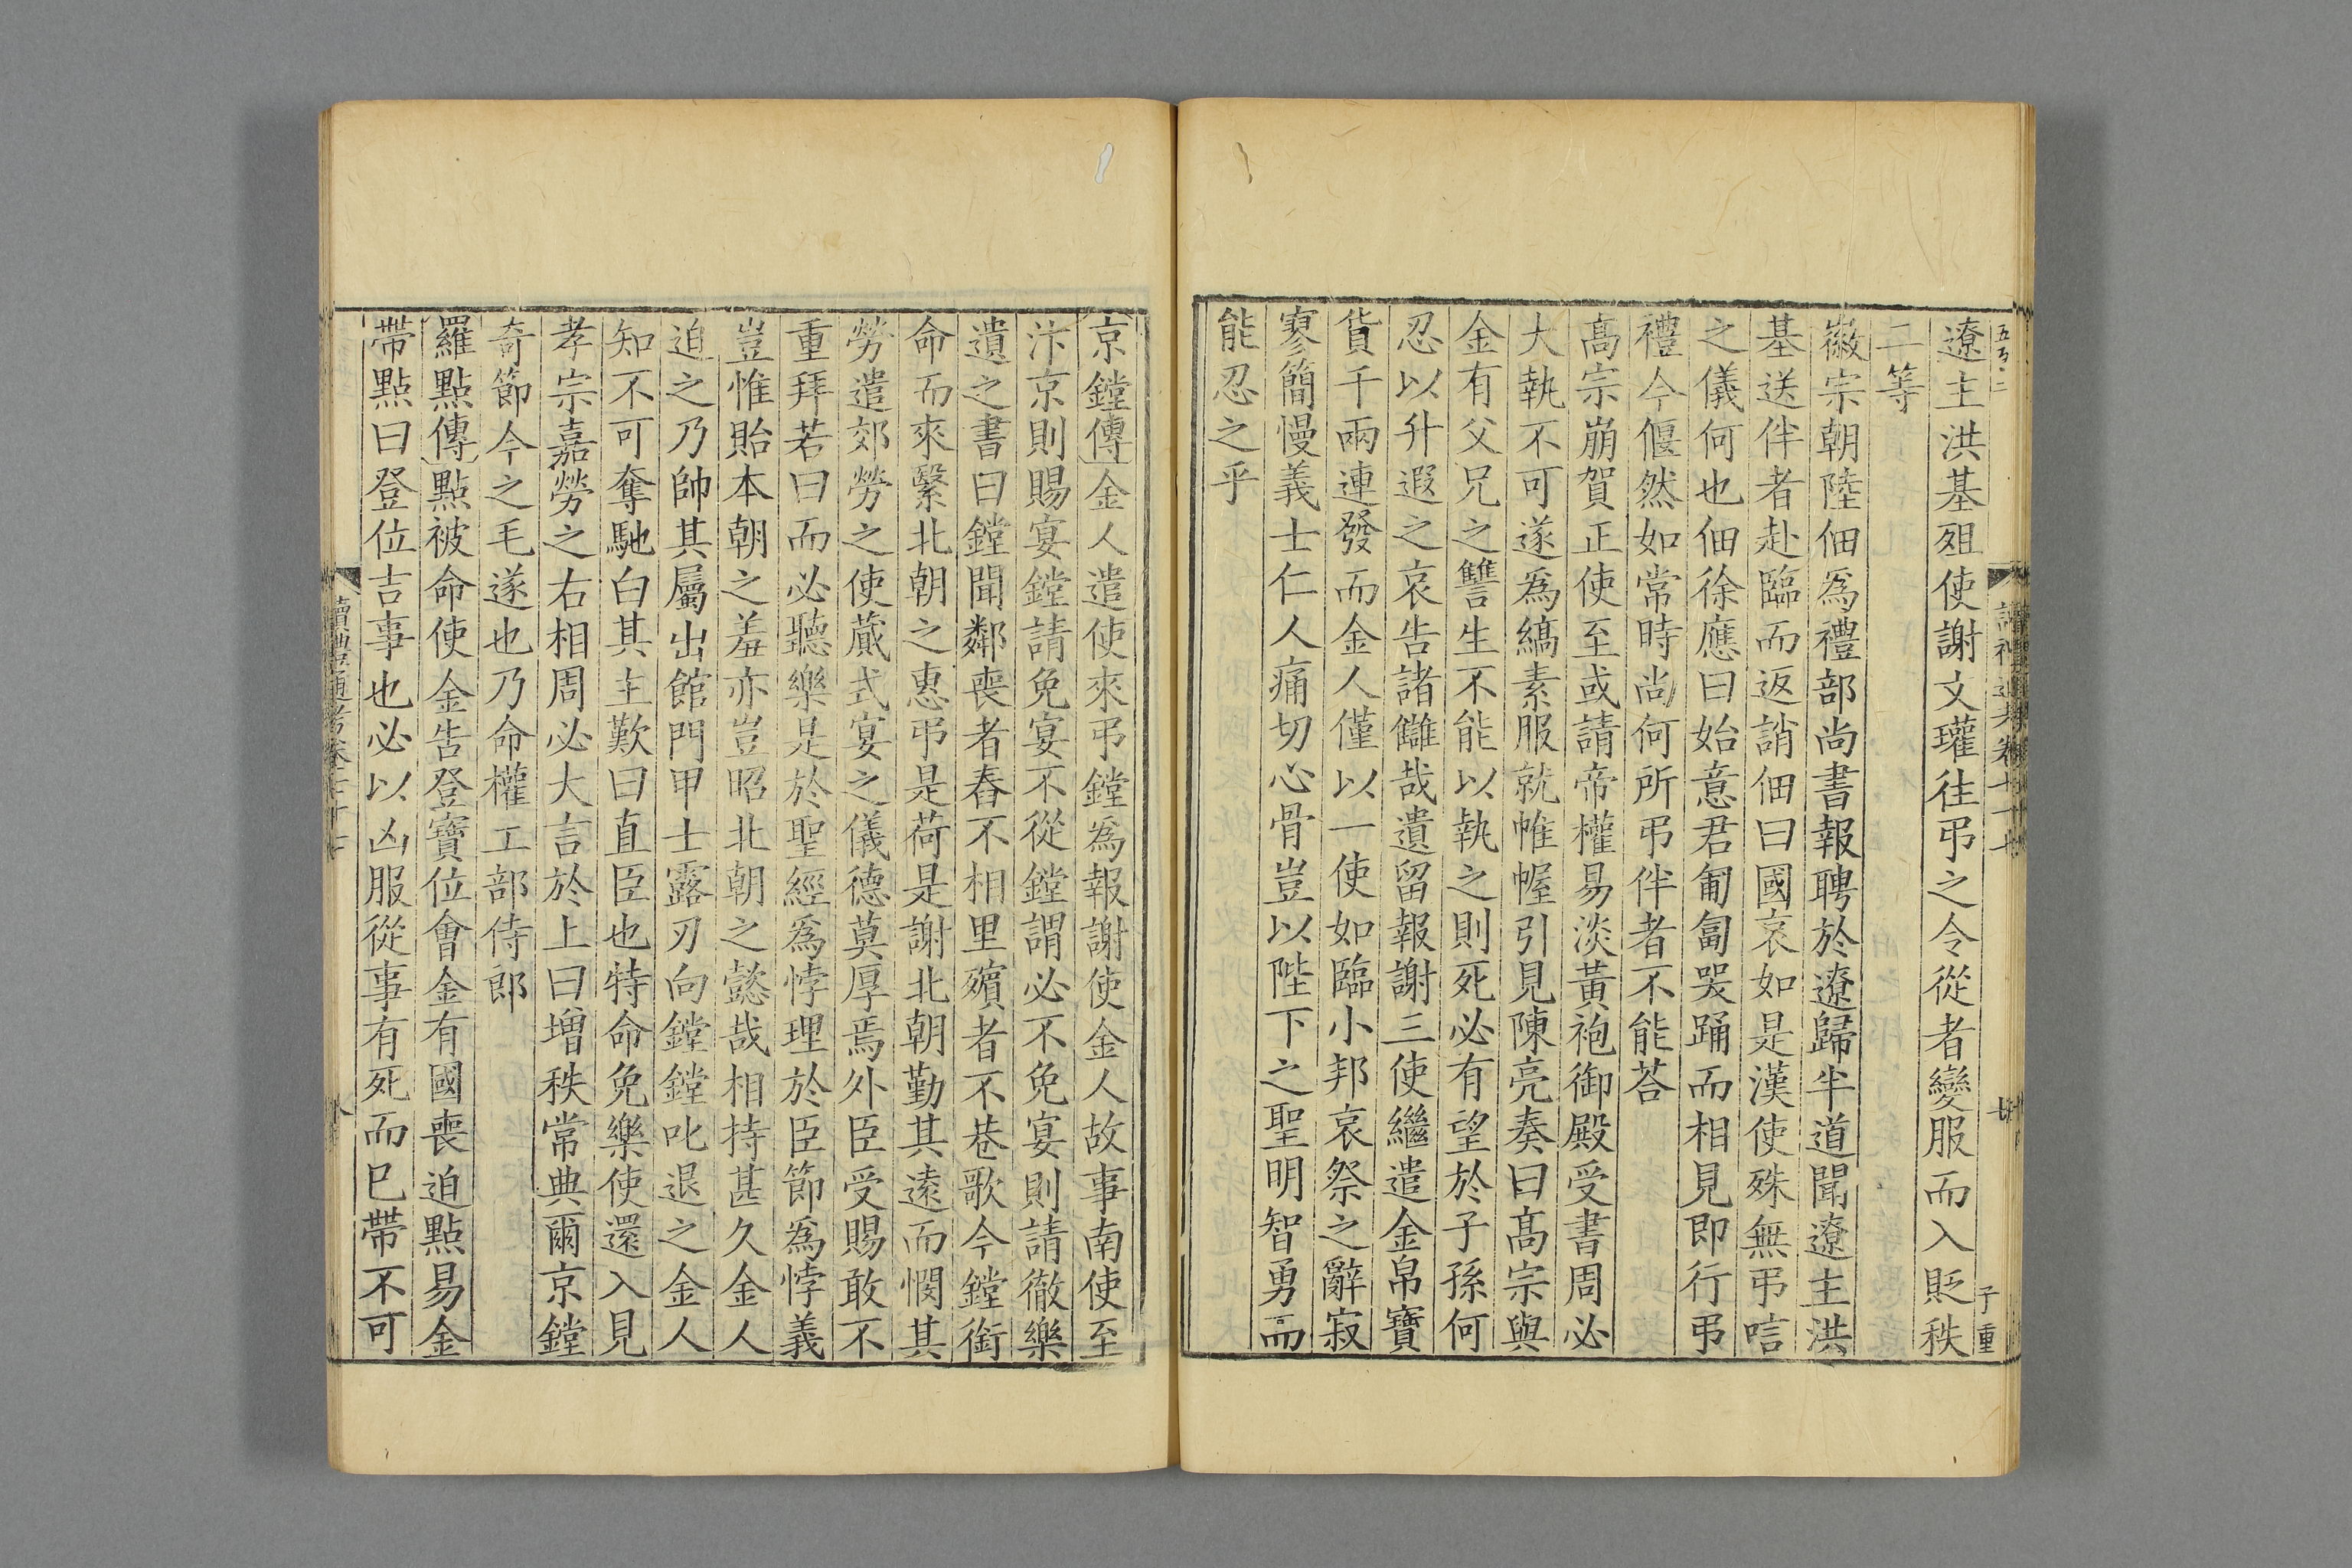 遼主洪基殂使謝文瓘往弔之令從者變服而入貶秩
二等
徽宗朝陸佃爲禮部尚書報聘於遼歸半道聞遼主洪
基送伴者赴臨而返誚佃曰國哀如是漢使殊無弔唁
之儀何也佃徐應曰始意君匍匐哭踊而相見即行弔
禮今偃然如常時尚何所弔伴者不能荅
高宗崩賀正使至或請帝權易淡黃袍御殿受書周必
大執不可遂爲縞素服就帷幄引見陳亮奏曰高宗與
金有父兄之讐生不能以執之則死必有望於子孫何
忍以升遐之哀告諸讎哉遺留報謝三使繼遣金帛寶
貨千兩連發而金人僅以一使如臨小邦哀祭之辭寂
寥簡慢義士仁人痛切心骨豈以陛下之聖明智勇而
能忍之乎
子重
京鏜傳金人遣使來弔鏜爲報謝使金人故事南使至
汴京則賜宴鏜請免宴不從鏜謂必不免宴則請徹樂
遺之書曰鏜聞鄰喪者舂不相里殯者不巷歌今鏜銜
命而來繄北朝之惠弔是荷是謝北朝勤其遠而憫其
勞遣郊勞之使蕆式宴之儀德莫厚焉外臣受賜敢不
重拜若曰而必聽樂是於聖經爲悖理於臣節爲悖義
豈惟貽本朝之羞亦豈昭北朝之懿哉相持甚久金人
迫之乃帥其屬出館門甲士露刃向鏜鏜叱退之金人
知不可奪馳白其主歎曰直臣也特命免樂使還入見
孝宗嘉勞之右相周必大言於上曰增秩常典爾京鏜
奇節今之毛遂也乃命權工部侍郎
羅點傳點被命使金告登寶位會金有國喪迫點易金
帶點曰登位吉事也必以凶服從事有死而已帶不可
讀禮通考卷